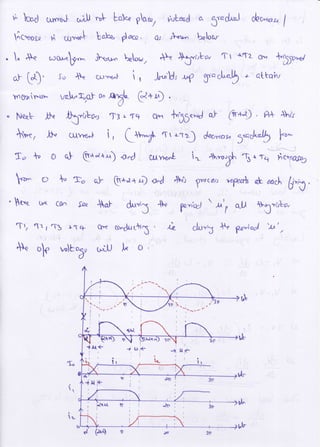 in load current will not take place, instead a gradual decrease /
increase in current takes place. as shown below
• In the waveform shown below, the thyristor T1 & T2 are triggered
at (α). So the current i1 builds up gradually & attains
maximum value I0 at an Angle (α+μ).
• Next the thyristors T3 & T4 are triggered at (π+α). At this
time, the current i1 (through T1 & T2) decreases gradually from
I0 to 0 at (π+α+μ) and current i2 through T3 & T4 increases
from 0 to I0 at (π+α+μ) and this process repeats at each firing.
• Here we can see that during the period 'μ', all thyristors
T1, T2, T3 & T4 are conducting. ie during the period 'μ',
the o/p voltage will be 0.
π 2π 3π ωt
α
(α+μ) 2π 3π ωt
I0 i1 i2 i1
π 2π 3π ωt
i1
α+μ π 2π 3π ωt
i2
α (α+μ) π 2π 3π ωt